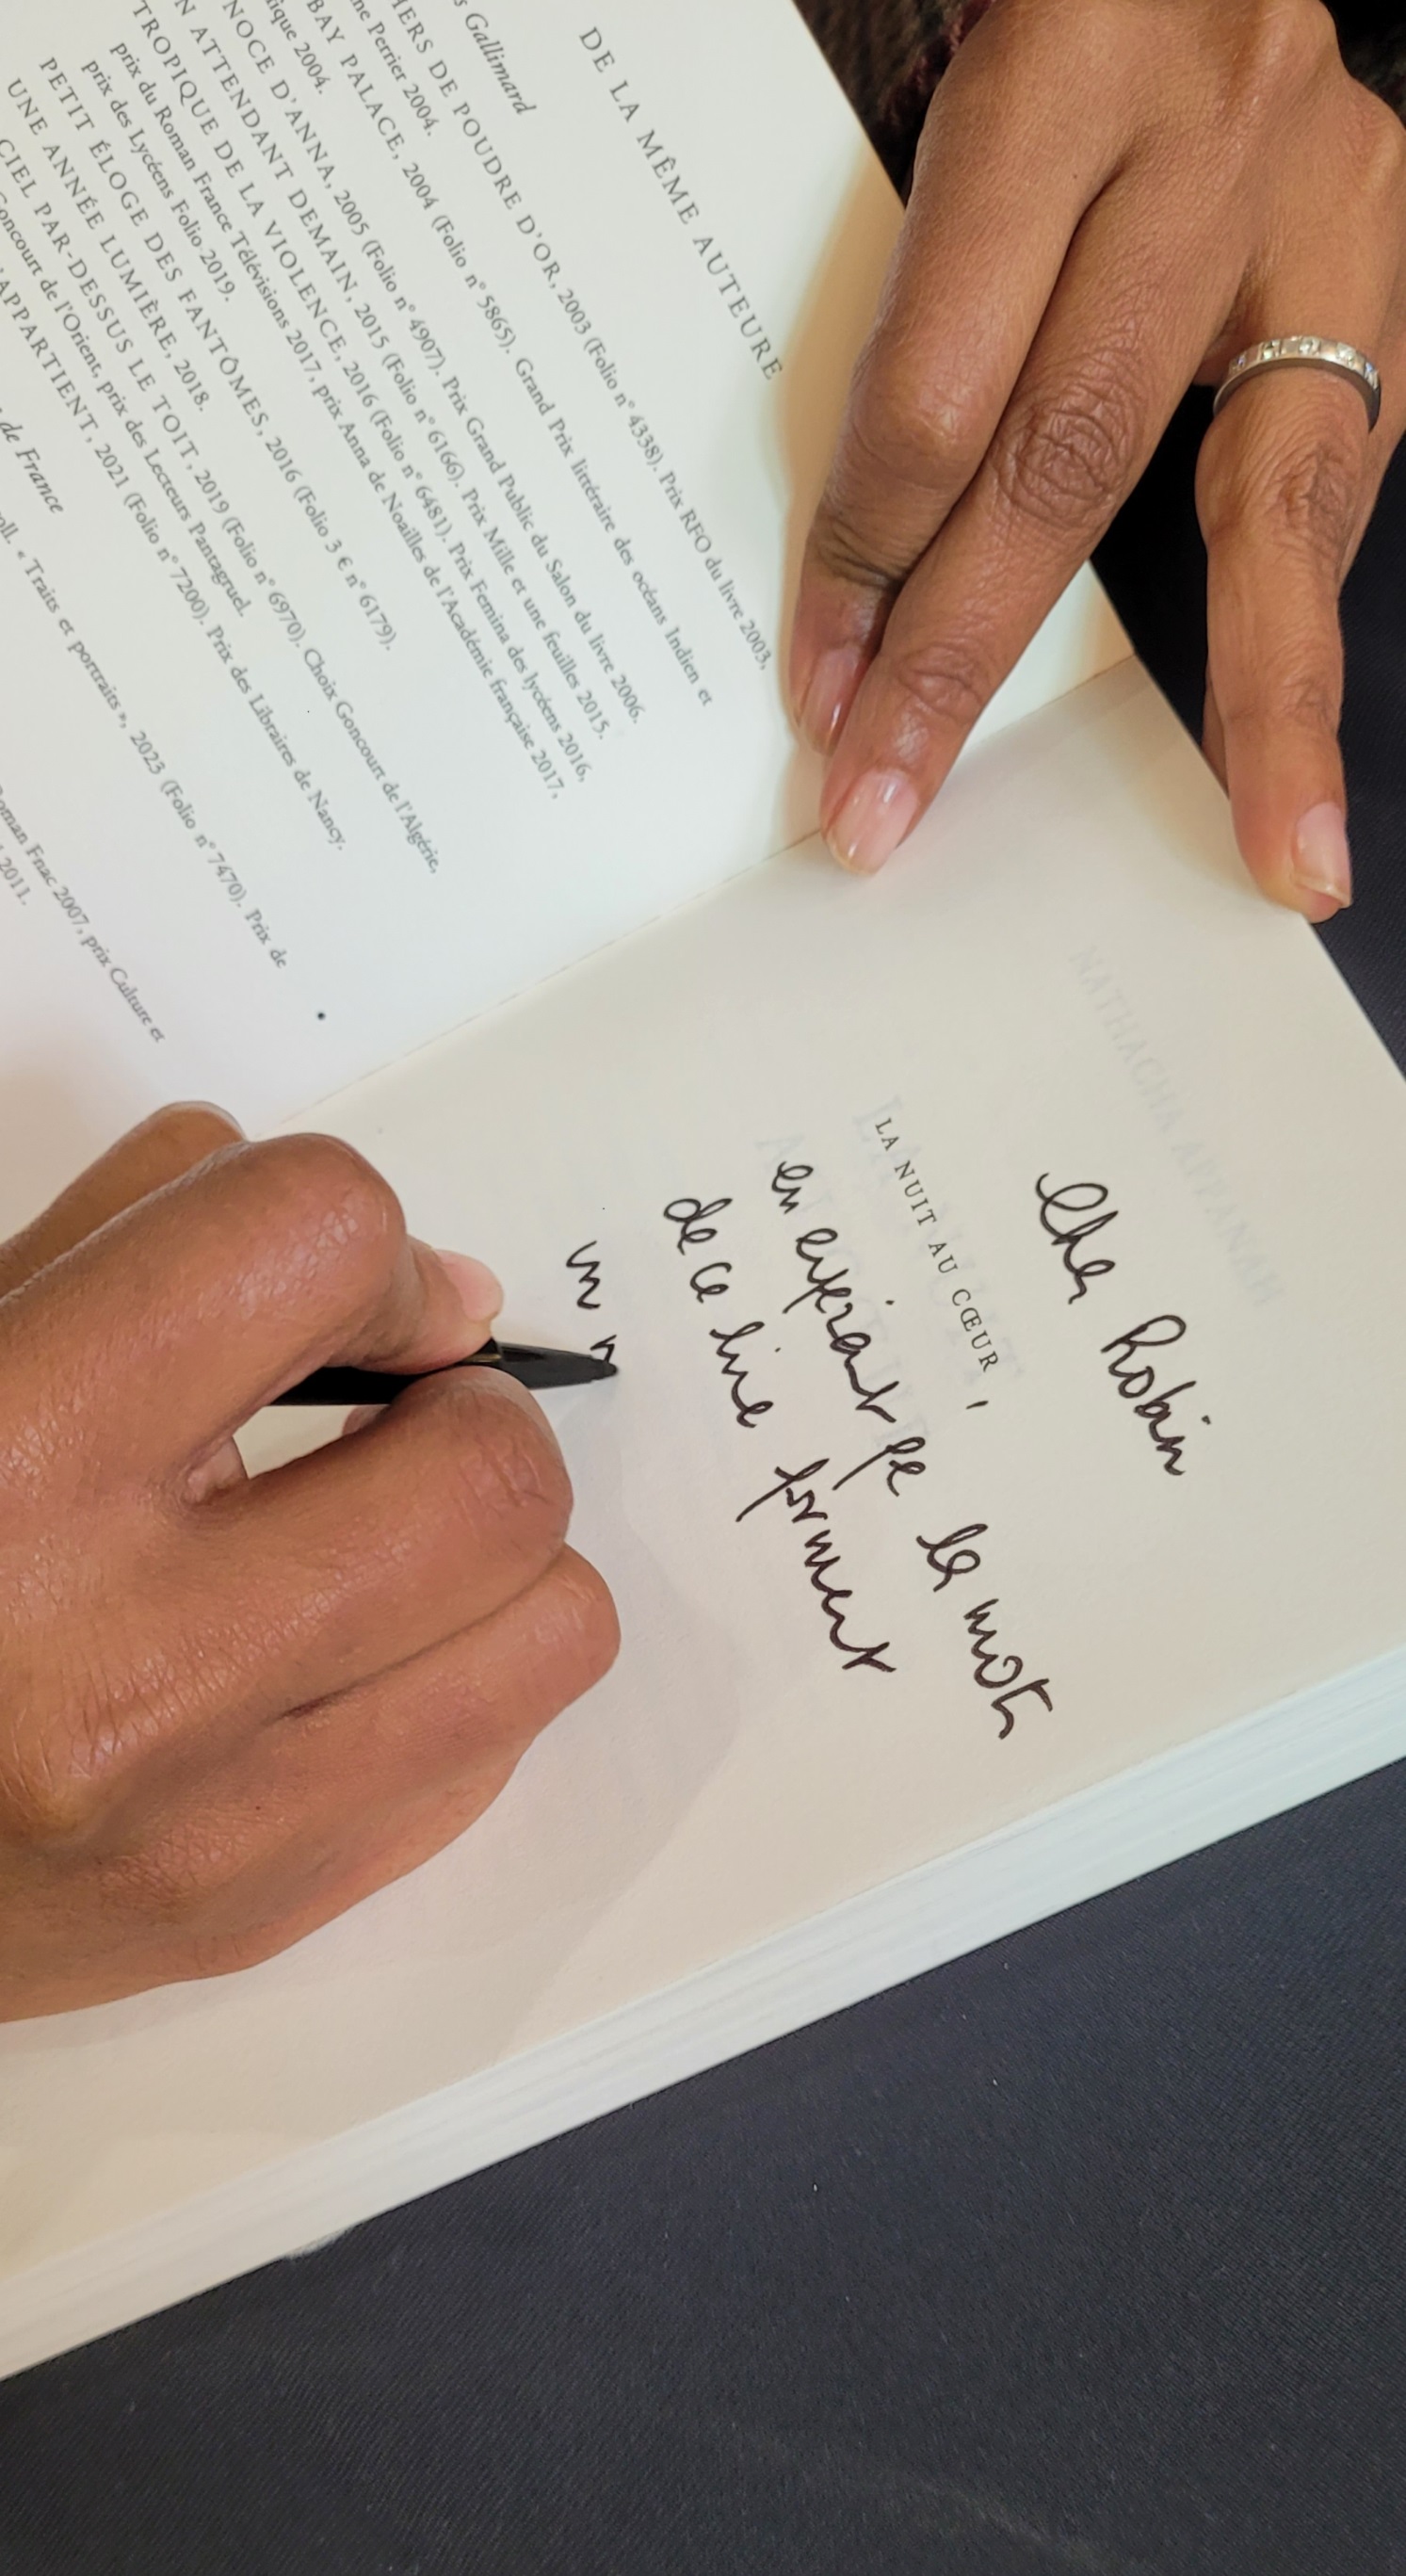 DE LA MÊME AUTEURE
s Gallimard
HERS DE POUDRE D'OR, 2003 (Folio n° 4338). Prix RFO du livre 2003,
ne Perrier 2004.
BAY PALACE, 2004 (Folio n° 5865). Grand Prix littéraire des océans Indien et
ique 2004.
NOCE D'ANNA, 2005 (Folio n° 4907). Prix Grand Public du Salon du livre 2006.
N ATTENDANT DEMAIN, 2015 (Folio n° 6166). Prix Mille et une feuilles 2015.
TROPIQUE DE LA VIOLENCE, 2016 (Folio n° 6481). Prix Femina des lycéens 2016,
prix du Roman France Télévisions 2017, prix Anna de Noailles de l'Académie française 2017,
prix des Lycéens Folio-2019.
PETIT ÉLOGE DES FANTÔMES, 2016 (Folio 3 € n° 6179).
UNE ANNÉE LUMIÈRE, 2018.
CIEL PAR-DESSUS LE TOIT, 2019 (Folio n° 6970). Choix Goncourt de l'Algérie,
Goncourt de l'Orient, prix des Lecteurs Pantagruel.
'APPARTIENT, 2021 (Folio n° 7200). Prix des Libraires de Nancy.
de France
oll. « Traits et portraits », 2023 (Folio n° 7470). Prix de
Roman Fnac 2007, prix Culture et
2011.
NATHACHA APPANAH
Cher Robin
LA NUIT AU CŒUR ,
en espérant que les mots
de ce livre forment
un